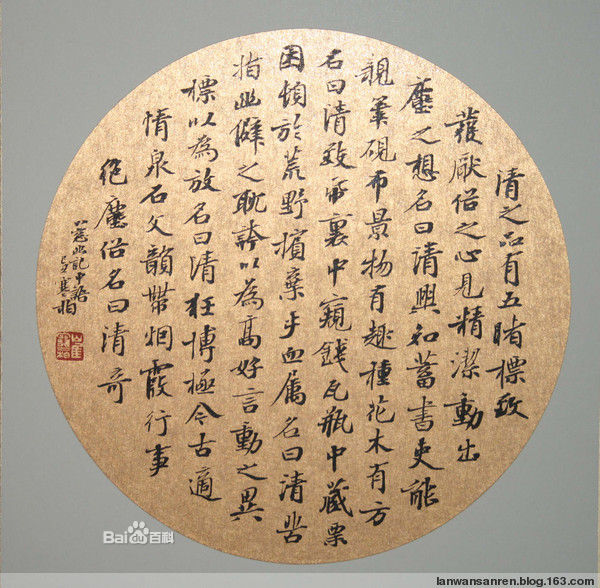 清之品有五睹標致
發厭俗之心見精潔動出
塵之想名曰清興知蓄書史能
親筆硯布景物有趣種花木有方
名曰清致帋裹中窺錢瓦瓶中藏粟
困頓於荒野擯棄乎血属名曰清苦
指幽僻之耽誇以為高好言動之異
標以為放名曰清狂博極今古適
情泉石文韻帶烟霞行事
絕塵俗名曰清奇
小窓幽記中語
Bai百科
lanwansanren.blog.163.com